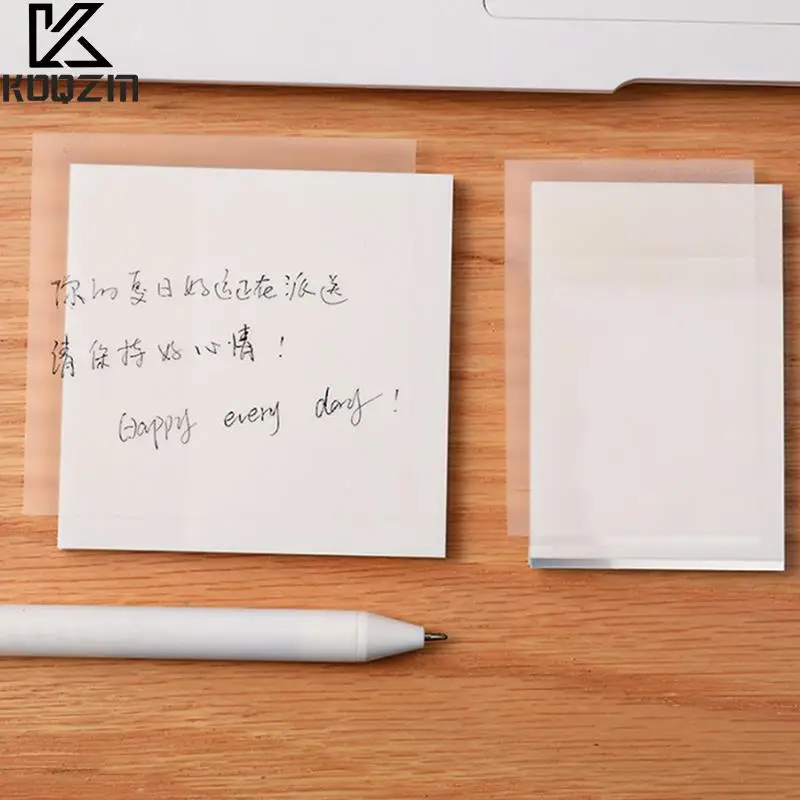 KOQZM
你的夏日好运正在派送
请保持好心情！
Happy every day!